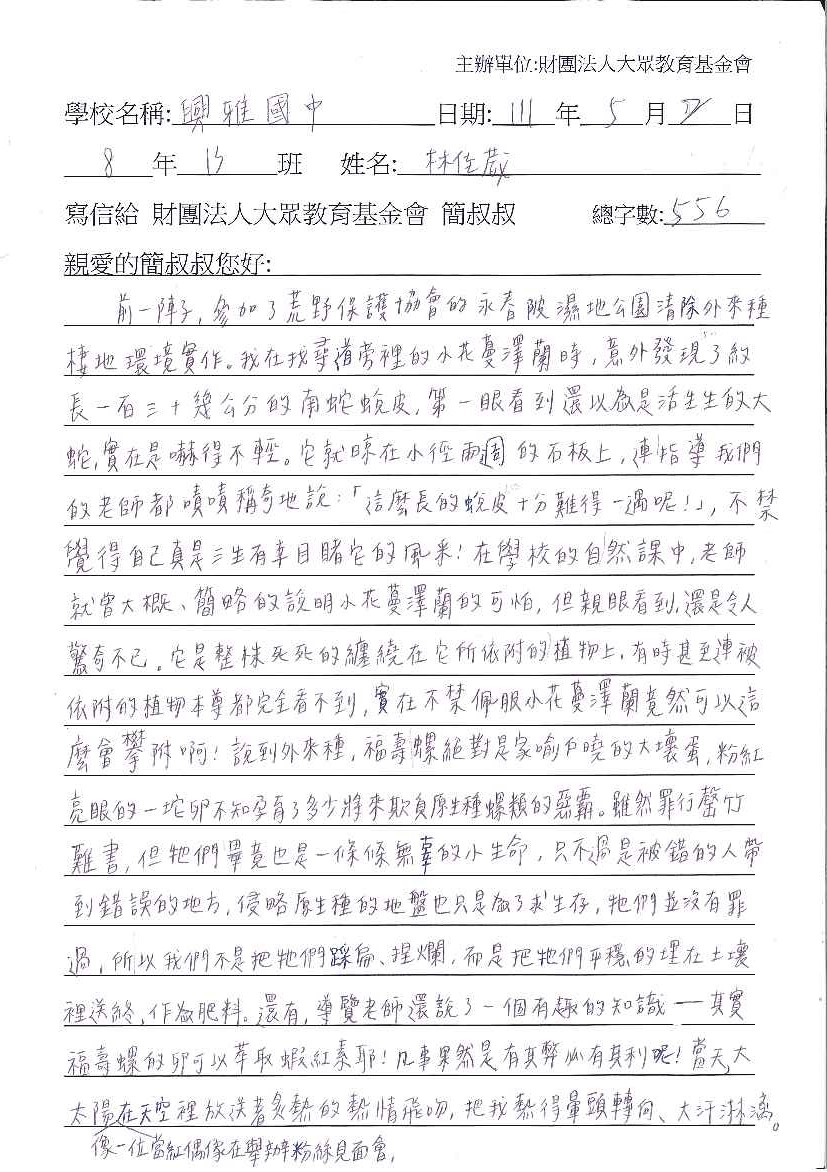 主辦單位:財團法人大眾教育基金會
學校名稱:興雅國中 日期: 111 年 5 月 日
8 年 13 班 姓名: 林佳葳
寫信給 財團法人大眾教育基金會 簡叔叔 總字數:556
親愛的簡叔叔您好:
前一陣子,參加了荒野保護協會的永春陂濕地公園清除外來種
棲地環境實作。我在找尋道旁裡的小花蔓澤蘭時,意外發現了約
長一百三十幾公分的南蛇蛻皮,第一眼看到還以為是活生生的大
蛇,實在是嚇得不輕。它就晾在小徑兩週的石板上,連指導我們
的老師都嘖嘖稱奇地說:「這麼長的蛻皮十分難得一遇呢!」,不禁
覺得自己真是三生有幸目睹它的風采!在學校的自然課中,老師
就曾大概、簡略的說明小花蔓澤蘭的可怕,但親眼看到,還是令人
驚奇不已。它是整株死死的纏繞在它所依附的植物上,有時甚至連被
依附的植物本尊都完全看不到,實在不禁佩服小花蔓澤蘭竟然可以這
麼會攀附啊!說到外來種,福壽螺絕對是家喻戶曉的大壞蛋,粉紅
亮眼的一坨卵不知孕育了多少將來欺負原生種螺類的惡霸。雖然罪行罄竹
難書,但牠們畢竟也是一條條無辜的小生命,只不過是被錯的人帶
到錯誤的地方,侵略原生種的地盤也只是為了求生存,牠們並沒有罪
過,所以我們不是把牠們踩扁、捏爛,而是把牠們平穩的埋在土壤
裡送終,作為肥料。還有,導覽老師還說了一個有趣的知識——其實
福壽螺的卵可以萃取蝦紅素耶!凡事果然是有其弊必有其利呢!當天,大
太陽在天空裡放送著炙熱的熱情飛吻,把我熱得暈頭轉向、大汗淋漓。
像一位當紅偶像在舉辦粉絲見面會,